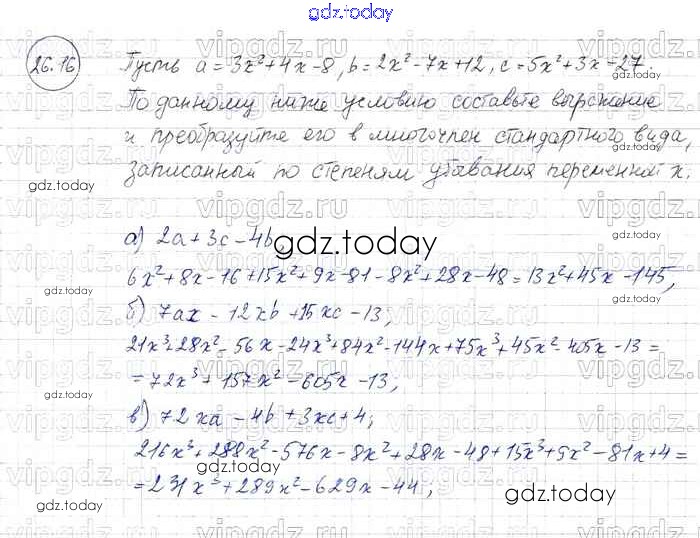 gdz.today
26.16 Пусть a=3x²+4x-8, b=2x²-7x+12, c=5x²+3x-27.
По данному ниже условию составьте выражение
и преобразуйте его в многочлен стандартного вида,
записанный по степеням убывания переменной x.
а) 2a+3c-4b,
6x²+8x-16+15x²+9x-81-8x²+28x-48=13x²+45x-145,
б) 7ax-12xb+15xc-13;
21x³+28x²-56x-24x³+84x²-144x+75x³+45x²-405x-13=
=72x³+157x²-605x-13;
в) 72xa-4b+3xc+4;
216x³+288x²-576x-8x²+28x-48+15x³+9x²-81x+4=
=231x³+289x²-629x-44;
vipgdz.ru
gdz.today
gdz.today
gdz.today
gdz.today
gdz.today
gdz.today
gdz.today
gdz.today